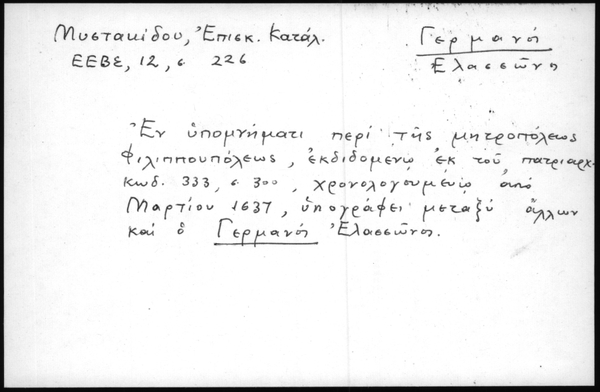 Μυστακίδου, Ἐπισκ. Κατάλ.
ΕΕΒΣ, 12, σ. 226
Γερμανός
Ελασσῶνος
Ἐν ὑπομνήματι περί τῆς μητροπόλεως
Φιλιππουπόλεως, ἐκδιδομένῳ ἐκ τοῦ πατριαρχ.
κωδ. 333, σ. 300, χρονολογουμένῳ ἀπό
Μαρτίου 1637, ὑπογράφει μεταξύ ἄλλων
καί ὁ Γερμανός Ἐλασσῶνος.